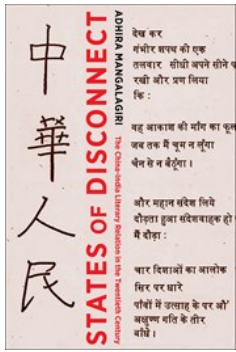 中
華
人
民
STATES OF DISCONNECT
The China-India Literary Relation in the Twentieth Century
ADHIRA MANGALAGIRI
देख कर
गंभीर शपथ की एक
तलवार सीधी अपने सीने प
रखी और प्रण लिया
कि :
वह आकाश की माँग का फूल
जब तक मैं चूम न लूँगा
चैन से न बैठूँगा ।
और महान संदेश लिये
दौड़ता हुआ संदेशवाहक हो
मैं दौड़ा :
चार दिशाओं का आलोक
सिर पर धारे
पाँवों में उत्साह के पर औ'
अक्षुण्ण गति के तीर
बाँधे ।